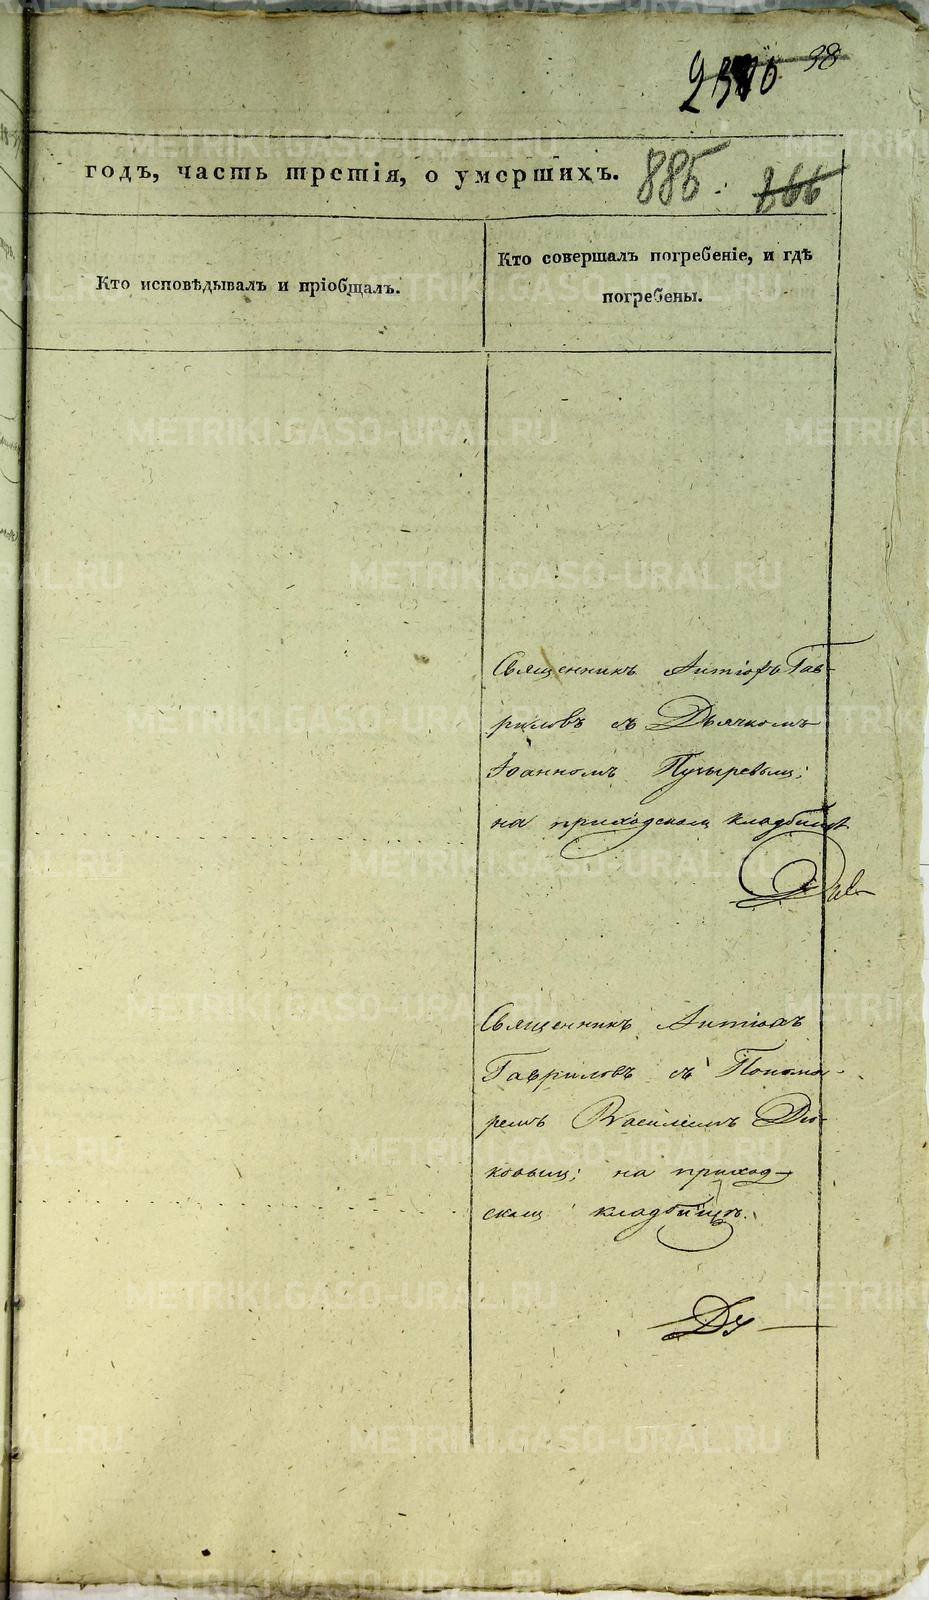 38
годъ, часть третія, о умершихъ.
885. 866
Кто исповѣдывалъ и пріобщалъ.
Кто совершалъ погребеніе, и гдѣ
погребены.
Священникъ Антіохъ Гав-
риловъ съ Дьячкомъ
Іоанномъ Пузыревымъ;
на приходскомъ кладбищѣ
Священникъ Антіохъ
Гавриловъ съ Понома-
ремъ Василіемъ
ковымъ; на приход-
скомъ кладбищѣ.
METRIKI.GASO-URAL.RU